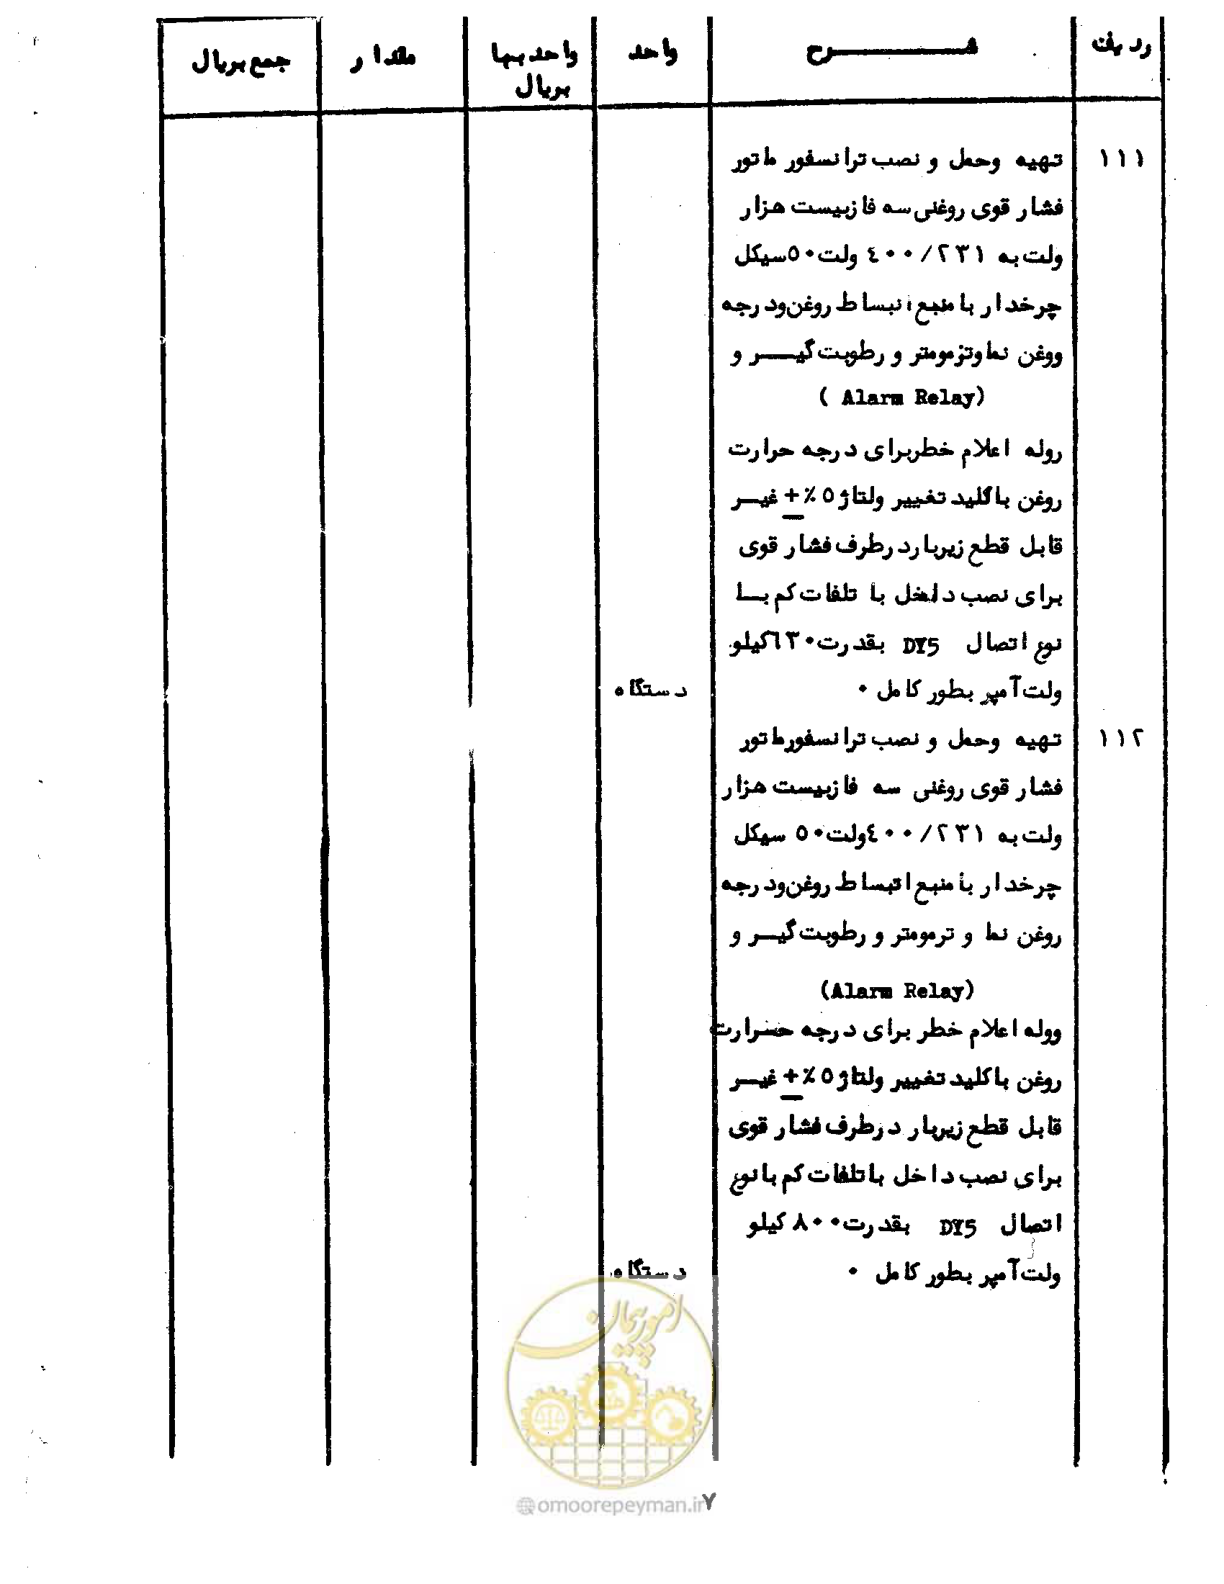 ردیف
شرح
واحد
واحد بها بریال
مقدار
جمع بریال
۱۱۱
تهیه وحمل و نصب ترانسفورماتور
فشار قوی روغنی سه فاز بیست هزار
ولت به ۴۰۰/۲۳۱ ولت ۵۰ سیکل
چرخدار با منبع انبساط روغن ودرجه
ووغن نما وتزمومتر و رطوبت گیر و
( Alarm Relay)
روله اعلام خطر برای درجه حرارت
روغن با کلید تغییر ولتاژ ۵٪ ± غیر
قابل قطع زیربار در طرف فشار قوی
برای نصب داخل با تلفات کم با
نوع اتصال DY5 بقدرت ۶۳۰ کیلو
ولت آمپر بطور کامل ۰
دستگاه
۱۱۲
تهیه وحمل و نصب ترانسفورماتور
فشار قوی روغنی سه فاز بیست هزار
ولت به ۴۰۰/۲۳۱ ولت ۵۰ سیکل
چرخدار با منبع اتبساط روغن ودرجه
روغن نما و ترمومتر و رطوبت گیر و
(Alarm Relay)
ووله اعلام خطر برای درجه حرارت
روغن با کلید تغییر ولتاژ ۵٪ ± غیر
قابل قطع زیربار در طرف فشار قوی
برای نصب داخل با تلفات کم با نوع
اتصال DY5 بقدرت ۸۰۰ کیلو
ولت آمپر بطور کامل ۰
دستگاه
امور پیمان
omoorepeyman.ir
۷